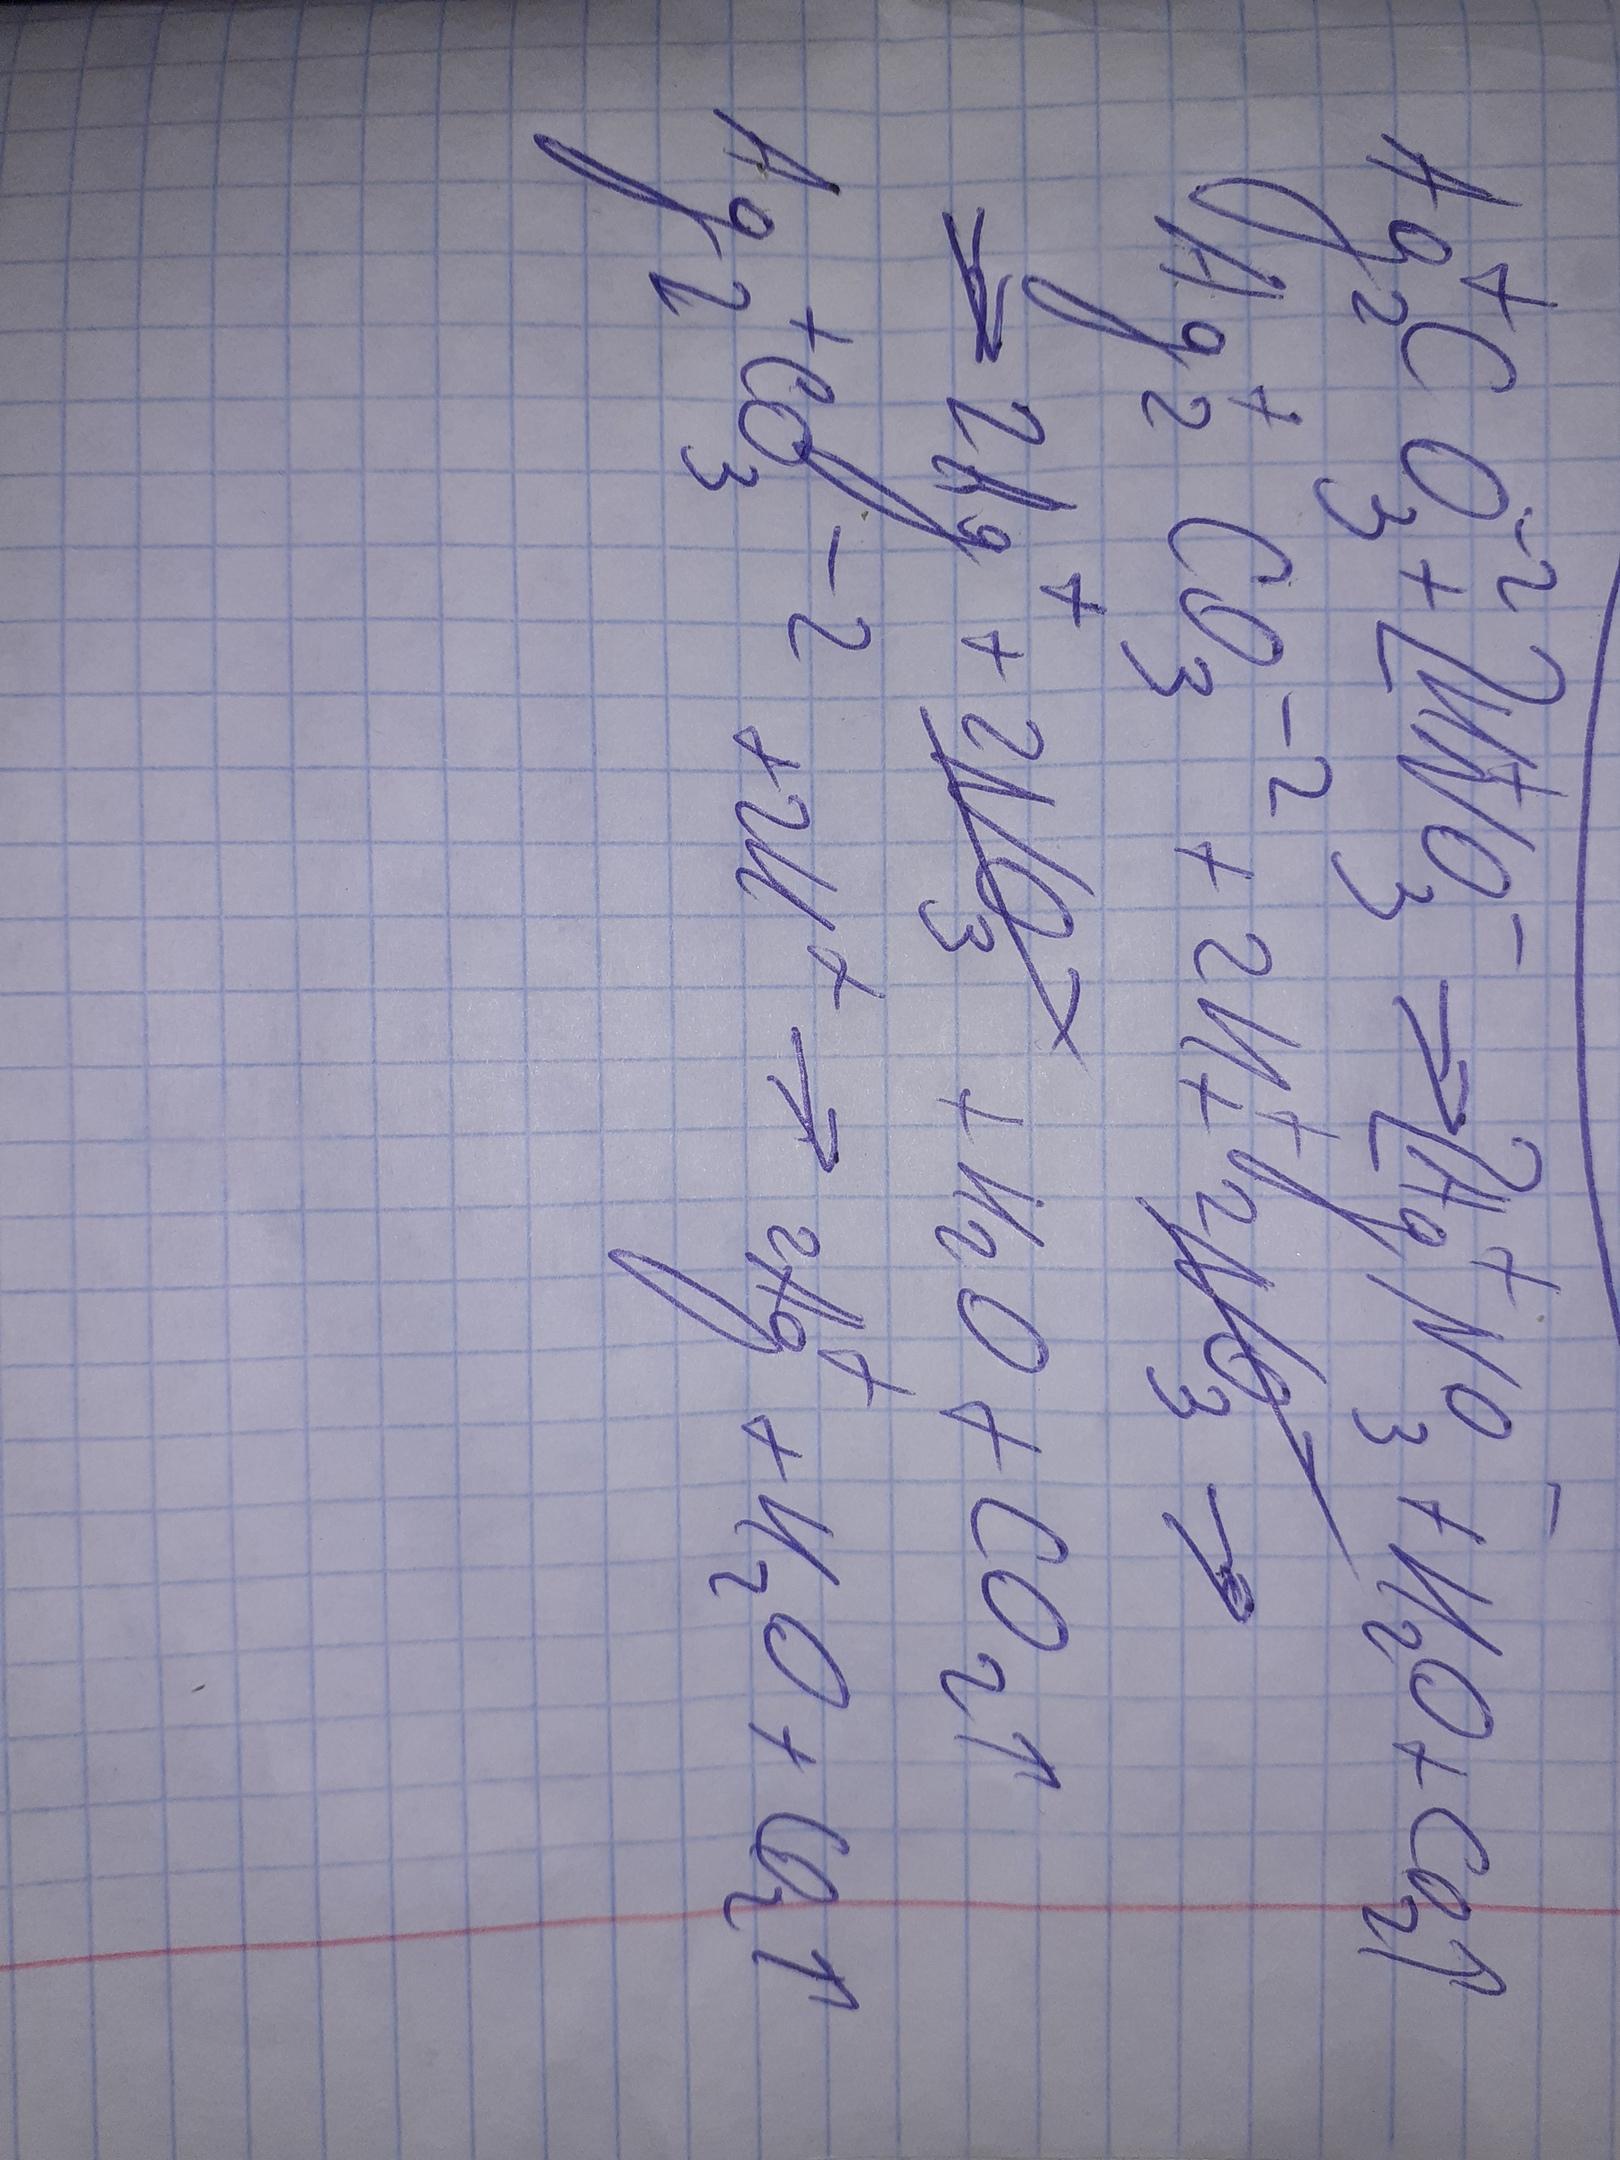 Ag₂⁺CO₃⁻² + 2H⁺NO₃⁻ → 2Ag⁺NO₃⁻ + H₂O + CO₂↑
Ag₂⁺CO₃⁻² + 2H⁺ + 2NO₃ →
→ 2Ag⁺ + 2NO₃ + H₂O + CO₂↑
Ag₂⁺CO₃⁻² + 2H⁺ → 2Ag⁺ + H₂O + CO₂↑